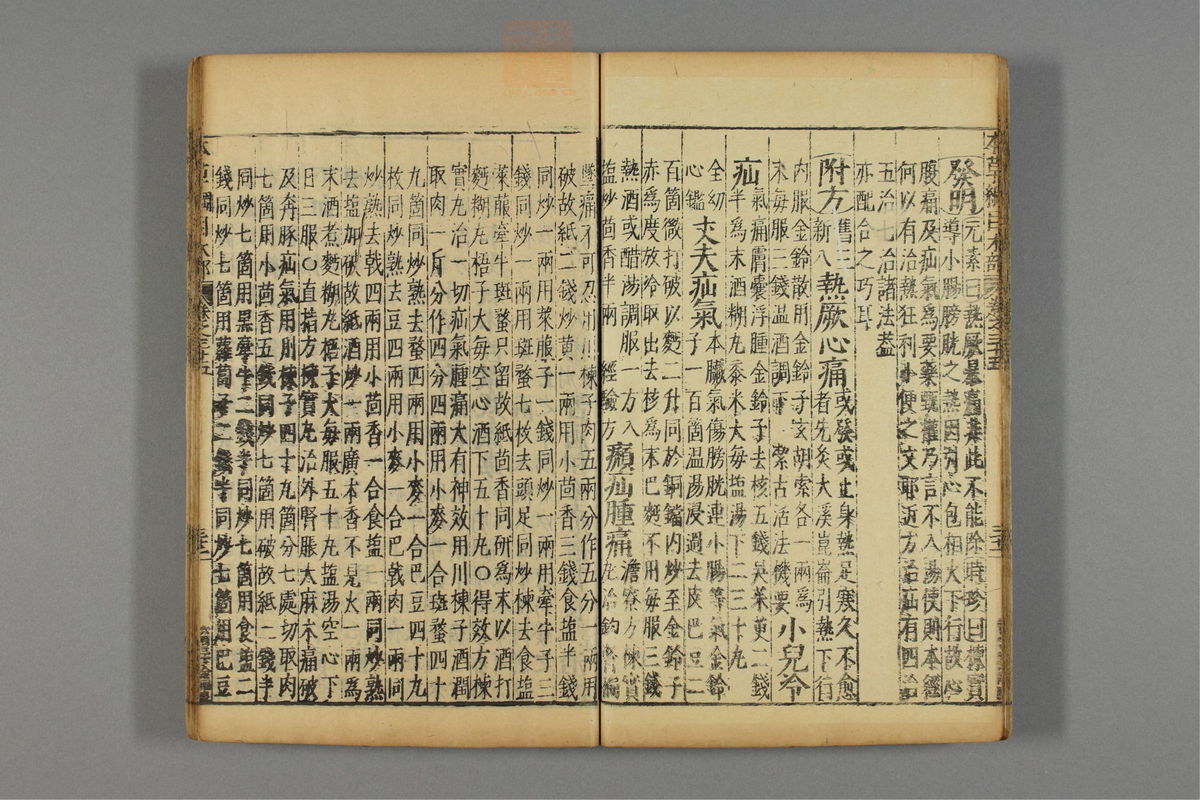 本草綱目木部 卷之三十五
發明元素曰熱厥暴痛非此不能除時珍曰楝實
導小腸膀胱之熱因引心包相火下行故心
腹痛及疝氣爲要藥甄權乃言不入湯使則本經
何以有治熱狂利小便之文耶近方治疝有四治
五治七治諸法葢
亦配合之巧耳
附方舊三新八熱厥心痛或發或止身熱足寒久不愈
者先灸大溪崑崙引熱下行
内服金鈴散用金鈴子玄胡索各一兩爲
末每服三錢温酒調下 潔古活法機要小兒冷
疝氣痛膚囊浮腫金鈴子去核五錢吳茱萸二錢
半爲末酒糊丸黍米大每塩湯下二三十丸
全幼心鑑丈夫疝氣本臟氣傷膀胱連小腸等氣金鈴
子一百箇温湯浸過去皮巴豆二
百箇微打破以麪二升同於銅鐺内炒至金鈴子
赤爲度放冷取出去核爲末巴麪不用每服三錢
熱酒或醋湯調服一方入
塩炒茴香半兩 經驗方㿗疝腫痛澹寮方楝實
丸治釣腎偏
墜痛不可忍用川楝子肉五兩分作五分一兩用
破故紙二錢炒黄一兩用小茴香三錢食塩半錢
同炒一兩用萊服子一錢同炒一兩用牽牛子三
錢同炒一兩用斑蝥七枚去頭足同炒楝去食塩
萊菔牽牛斑蝥只留故紙茴香同研爲末以酒打
麪糊丸梧子大每空心酒下五十丸〇得效方楝
實丸治一切疝氣腫痛大有神效用川楝子酒潤
取肉一斤分作四分四兩用小麥一合斑蝥四十
九箇同炒熟去蝥四兩用小麥一合巴豆四十九
枚同炒熟去豆四兩用小麥一合巴戟肉一兩同
炒熟去戟四兩用小茴香一合食塩一兩同炒熟
去塩加破故紙酒炒一兩廣木香不見火一兩爲
末酒煮麪糊丸梧子大每服五十丸塩湯空心下
日三服〇直指方楝實丸治外腎脹大麻木痛破
及奔豚疝氣用川楝子四十九箇分七處切取肉
七箇用小茴香五錢同炒七箇用破故紙二錢半
同炒七箇用黒牽牛二錢半同炒七箇用食塩二
錢同炒七箇用蘿蔔子二錢半同炒七箇用巴豆
本草綱目木部 卷之三十五